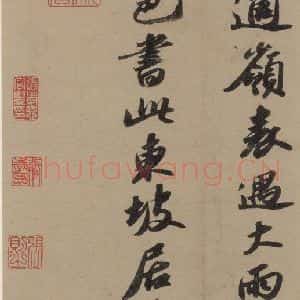 適嶺表遇大雨
邑書此東坡居
shufawang.CN